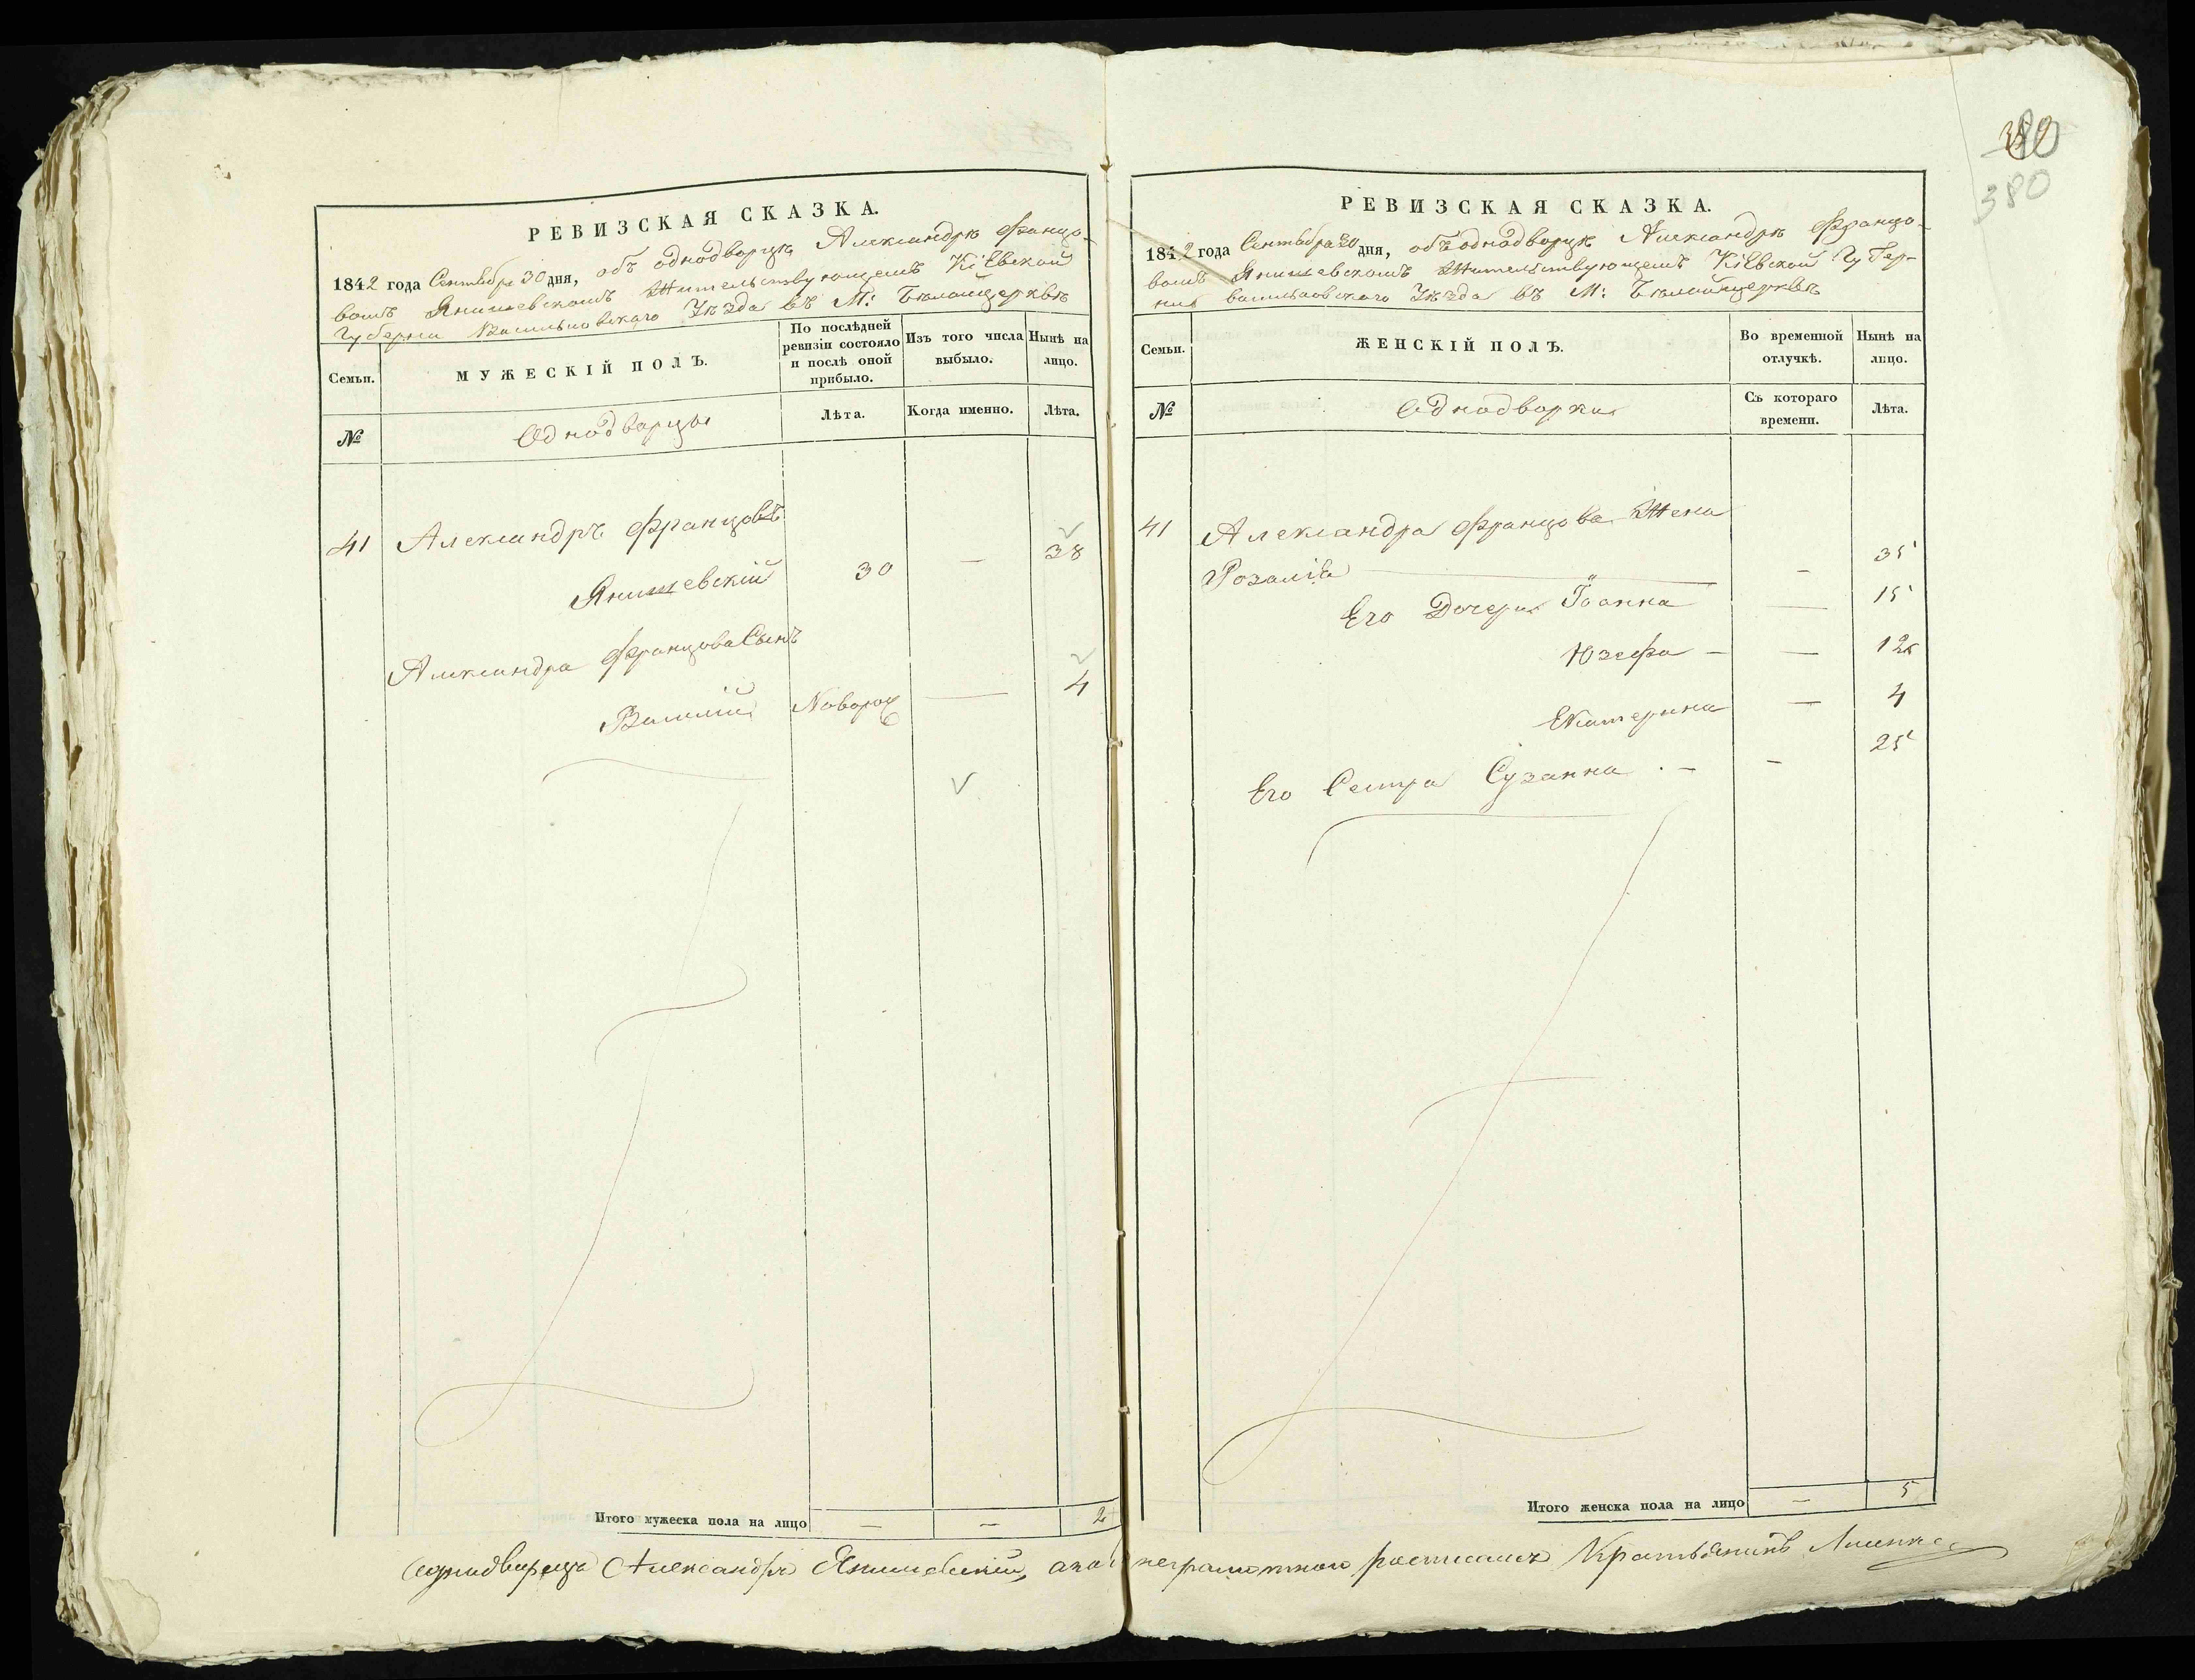 РЕВИЗСКАЯ СКАЗКА.
1842 года Сентября 30 дня, объ однодворцѣ Александрѣ Францо-
вомъ Янишевскомъ Жительствующемъ Кіевской
Губерни Васильковскаго Уѣзда въ М: Бѣлойцерквѣ
Семьи.
МУЖЕСКІЙ ПОЛЪ.
По послѣдней ревизіи состояло и послѣ оной прибыло.
Изъ того числа выбыло.
Нынѣ на лицо.
№
Однодворцы
Лѣта.
Когда именно.
Лѣта.
41 Александръ Францовъ
Янишевскій 30 — 38
Александра Францова Сынъ
Новорож — 4
Итого мужеска пола на лицо — — 2
380
РЕВИЗСКАЯ СКАЗКА.
1842 года Сентября 30 дня, объ однодворцѣ Александрѣ Францо-
вомъ Янишевскомъ Жительствующемъ Кіевской Губер-
нии Васильковскаго Уѣзда въ М: Бѣлойцерквѣ
Семьи.
ЖЕНСКІЙ ПОЛЪ.
Во временной отлучкѣ.
Нынѣ на лицо.
№
Однодворки
Съ котораго времени.
Лѣта.
41 Александра Францова Жена
Розалія — — 35
Его Дочери Іоанна — 15
Юзефа — — 12
Екатерина — 4
Его Сестра Сузанна — — 25
Итого женска пола на лицо — 5
Однодворецъ Александръ Янишевскій, а за неграмотнаго росписался